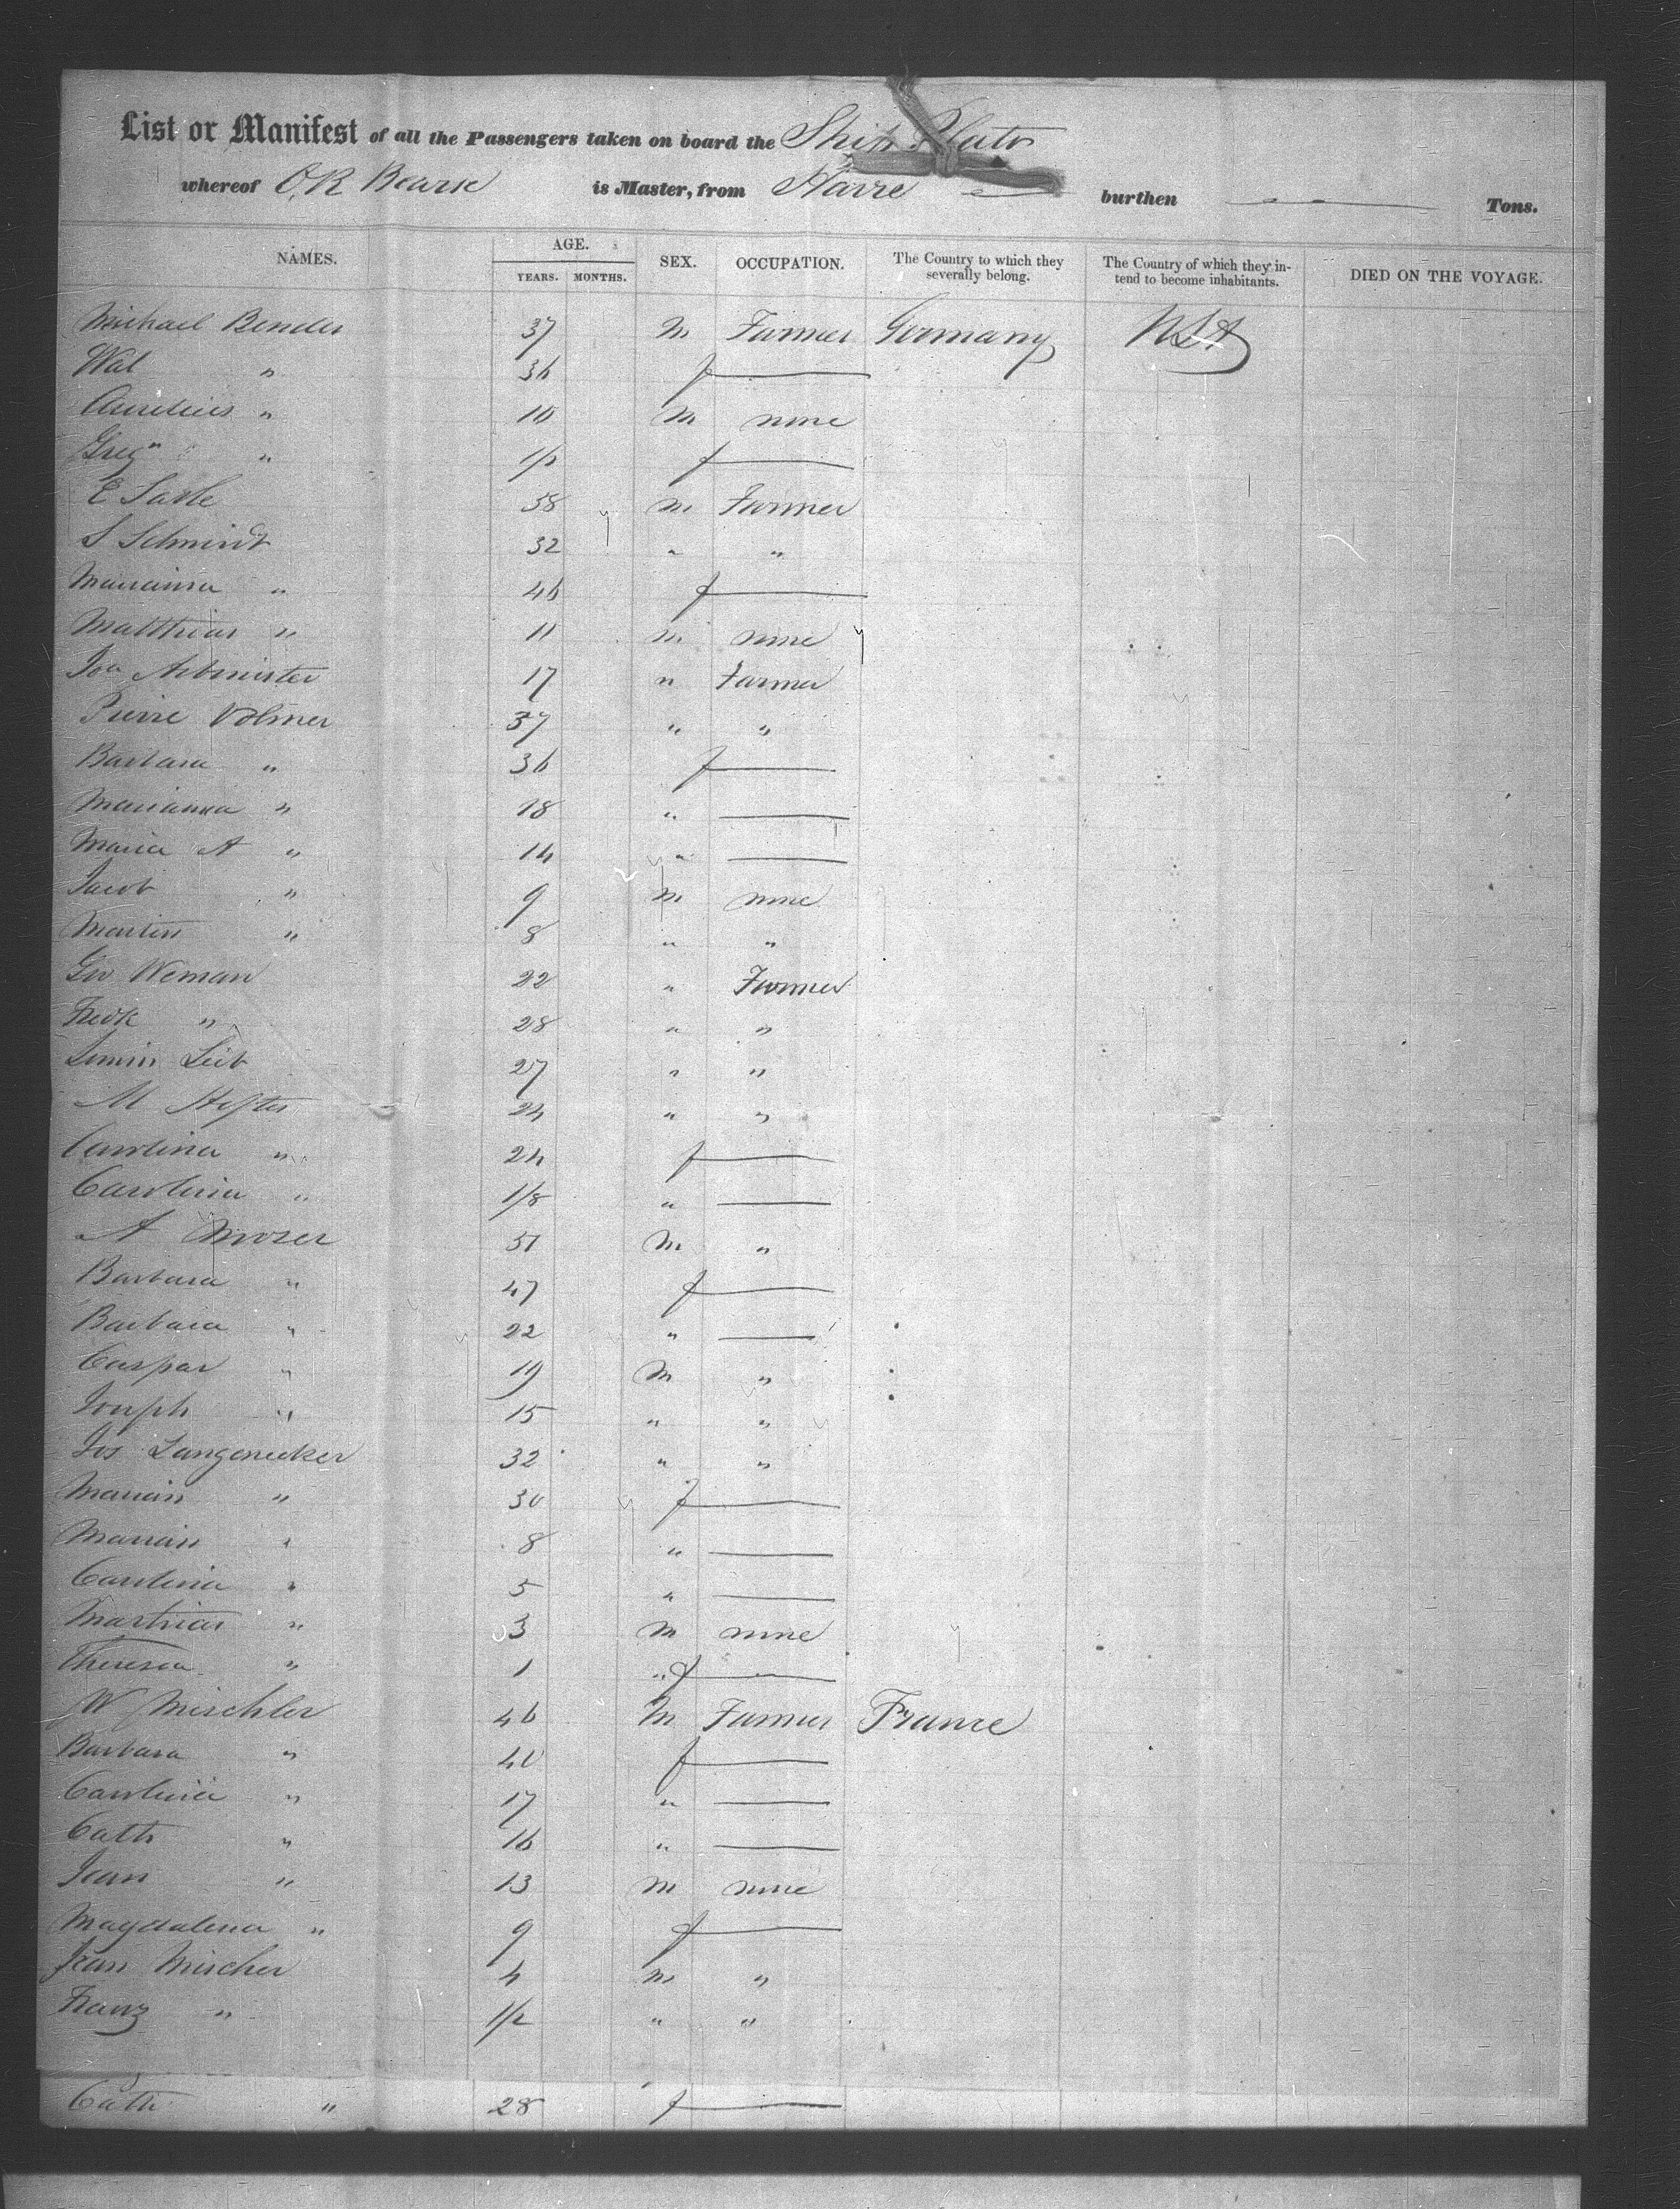 List or Manifest of all the Passengers taken on board the Ship Pluto
whereof O,R Bearse is Master, from Havre burthen Tons.
NAMES. AGE. YEARS. MONTHS. SEX. OCCUPATION. The Country to which they severally belong. The Country of which they intend to become inhabitants. DIED ON THE VOYAGE.
Michael Bender 37 M Farmer Germany USA
Wal " 36 f
Aurelius " 10 M none
Greg " 1/2 f
E 58 m Farmer
S Schmidt 32 " "
Marianna " 46 f
Matthias " 11 m none
Jos 17 " Farmer
Pierre Volmer 37 " "
Barbara " 36 f
Marianna " 18 "
Maria A " 14 "
Jacob " 9 M none
Martin " 8 " "
Geo Weman 22 " Farmer
Fredk " 28 " "
Leib 27 " "
M 24 " "
Carolina " 24 f
Carolina " 1/8 "
A Moser 51 M "
Barbara " 47 f
Barbara " 22 "
Caspar " 19 M "
Joseph " 15 " "
Jos Langenecker 32 " "
Marian " 30 f
Marian " 8 "
Carolina " 5 "
Mathias " 3 M none
Theresa " 1 " f
W Mischler 46 M Farmer France
Barbara " 40 f
Carolina " 17 "
Cath " 16 "
Jean " 13 M none
Magdalena " 9 f
Jean Mischer 4 m "
Franz " 1/2 " "
Cath " 28 f